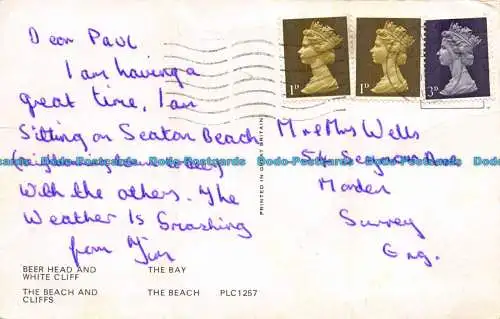 Dear Paul
I am having a
great time, I am
Sitting on Seaton Beach
With the others. The
Weather Is Smashing
from Jim
Mr & Mrs Wells
54
Morden
Surrey
Eng.
1D
1D
3D
PRINTED IN GREAT BRITAIN
Dodo-Postcards Dodo-Postcards Dodo-Postcards Dodo-Postcards
BEER HEAD AND
WHITE CLIFF
THE BAY
THE BEACH AND
CLIFFS
THE BEACH PLC1257